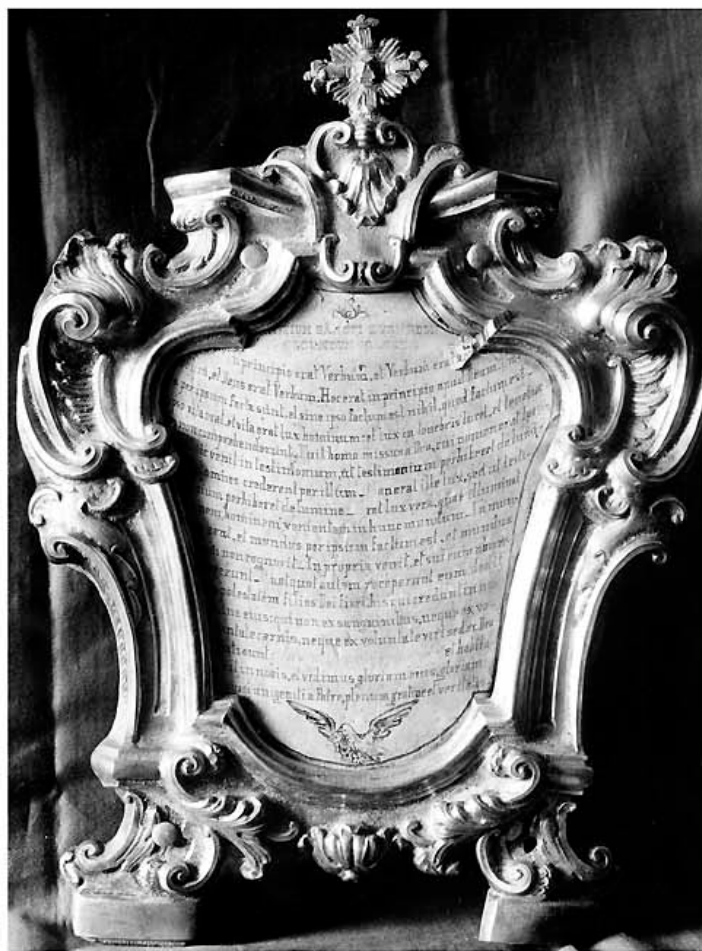 SANCTI
principio erat Verbum, et Verbum erat
et Deus erat Verbum. Hoc erat in principio apud Deum.
per ipsum facta sunt, et sine ipso factum est nihil, quod factum est
vita erat, et vita erat lux hominum: et lux in tenebris lucet, et tenebrae
comprehenderunt. Fuit homo missus a Deo, cui nomen erat
ic venit in testimonium, ut testimonium perhiberet de lumi
omnes crederent per illum. erat ille lux, sed ut testi
nium perhiberet de lumine. rat lux vera, quae illuminat
nem hominem venientem in hunc mundum. In mun
erat, et mundus per ipsum factus est, et mundus
non cognovit. In propria venit, et sui eum non re
erunt. uotquot autem receperunt eum dedit
potestatem filios Dei fieri his qui credunt in no
ne eius; qui non ex sanguinibus, neque ex vo
untate carnis, neque ex voluntate viri sed ex Deo
nati sunt et habita
it in nobis, et vidimus gloriam eius, gloriam
si unigeniti a Patre, plenum gratiae et veritatis